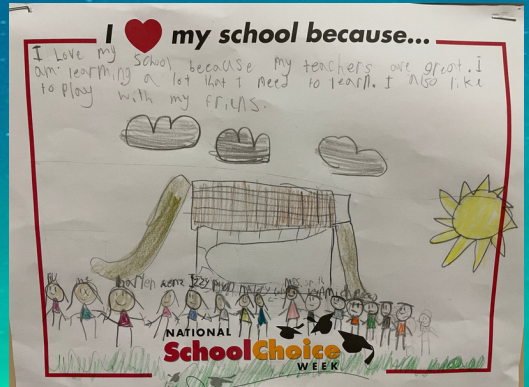 I ❤ my school because...
I Love my school because my teachers are great. I
am learning a lot that I need to learn. I also like
to play with my friens.
me
Izzy
NATIONAL
SchoolChoice
WEEK